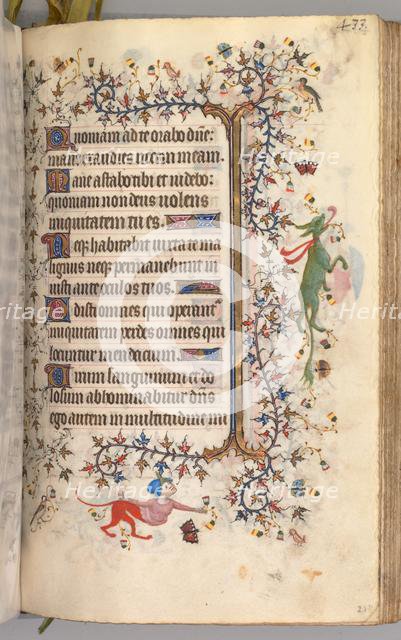 433
Quoniam ad te orabo dñe:
mane exaudies uocem meam.
Mane astabo tibi et uidebo:
quoniam non deus uolens
iniquitatem tu es.
Neqz habitabit iuxta te ma
lignus neqz permanebunt in
iusti ante oculos tuos.
Odisti omnes qui operant
iniquitatem perdes omnes qui
locuntur mendacium.
Uirum sanguinum et do
losum abhominabitur dñs
ego autem in multitudine mi
Heritage Heritage Heritage
Images